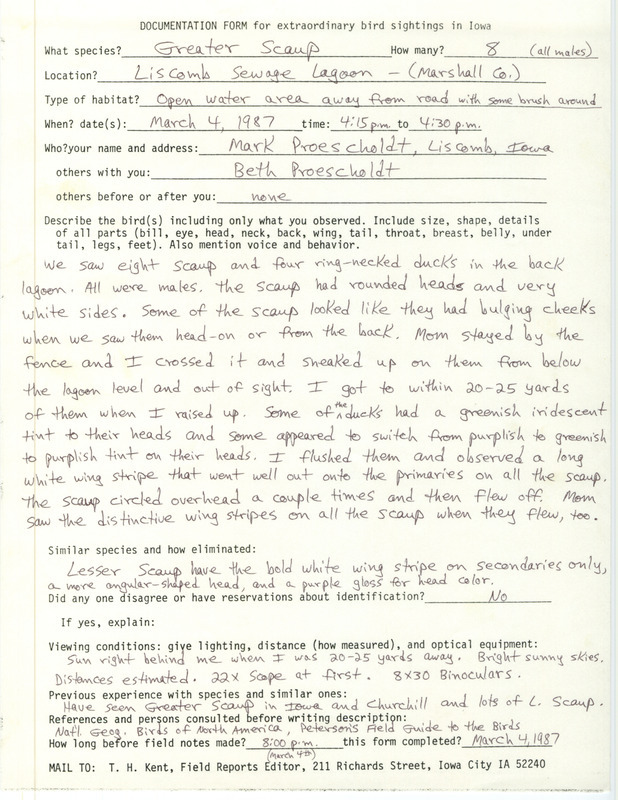 DOCUMENTATION FORM for extraordinary bird sightings in Iowa
What species? Greater Scaup How many? 8 (all males)
Location? Liscomb Sewage Lagoon - (Marshall Co.)
Type of habitat? Open water area away from road with some brush around
When? date(s): March 4, 1987 time: 4:15 p.m. to 4:30 p.m.
Who?your name and address: Mark Proescholdt, Liscomb, Iowa
others with you: Beth Proescholdt
others before or after you: none
Describe the bird(s) including only what you observed. Include size, shape, details
of all parts (bill, eye, head, neck, back, wing, tail, throat, breast, belly, under
tail, legs, feet). Also mention voice and behavior.
We saw eight scaup and four ring-necked ducks in the back
lagoon. All were males. The scaup had rounded heads and very
white sides. Some of the scaup looked like they had bulging cheeks
when we saw them head-on or from the back. Mom stayed by the
fence and I crossed it and sneaked up on them from below
the lagoon level and out of sight. I got to within 20-25 yards
of them when I raised up. Some of the ducks had a greenish iridescent
tint to their heads and some appeared to switch from purplish to greenish
to purplish tint on their heads. I flushed them and observed a long
white wing stripe that went well out onto the primaries on all the scaup.
The scaup circled overhead a couple times and then flew off. Mom
saw the distinctive wing stripes on all the scaup when they flew, too.
Similar species and how eliminated:
Lesser Scaup have the bold white wing stripe on secondaries only,
a more angular-shaped head, and a purple gloss for head color.
Did any one disagree or have reservations about identification? No
If yes, explain:
Viewing conditions: give lighting, distance (how measured), and optical equipment:
Sun right behind me when I was 20-25 yards away. Bright sunny skies.
Distances estimated. 22x Scope at first. 8x30 Binoculars.
Previous experience with species and similar ones:
Have seen Greater Scaup in Iowa and Churchill and lots of L. Scaup.
References and persons consulted before writing description:
Natl. Geog. Birds of North America, Peterson's Field Guide to the Birds
How long before field notes made? 8:00 p.m. this form completed? March 4, 1987
(March 4th)
MAIL TO: T. H. Kent, Field Reports Editor, 211 Richards Street, Iowa City IA 52240